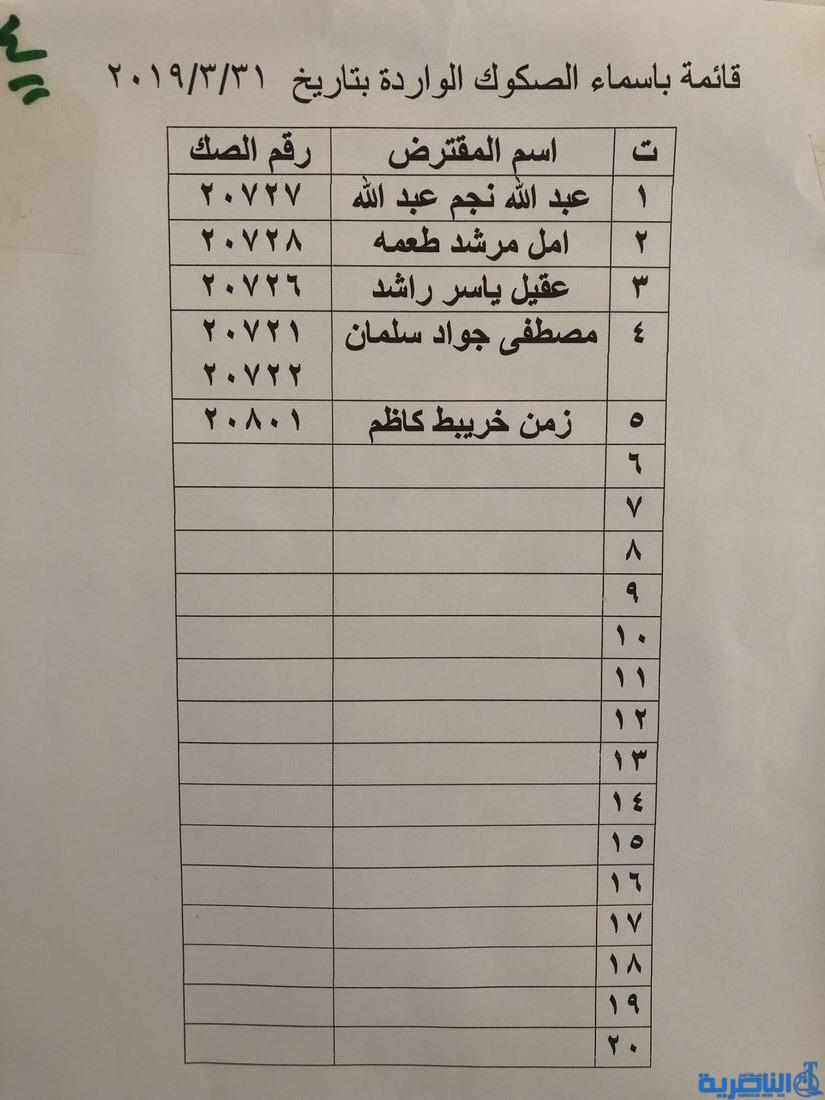 قائمة باسماء الصكوك الواردة بتاريخ ٢٠١٩/٣/٣١
ت اسم المقترض رقم الصك
١ عبد الله نجم عبد الله ٢٠٧٢٧
٢ امل مرشد طعمه ٢٠٧٢٨
٣ عقيل ياسر راشد ٢٠٧٢٦
٤ مصطفى جواد سلمان ٢٠٧٢١
٢٠٧٢٢
٥ زمن خريبط كاظم ٢٠٨٠١
٦
٧
٨
٩
١٠
١١
١٢
١٣
١٤
١٥
١٦
١٧
١٨
١٩
٢٠
الناصرية